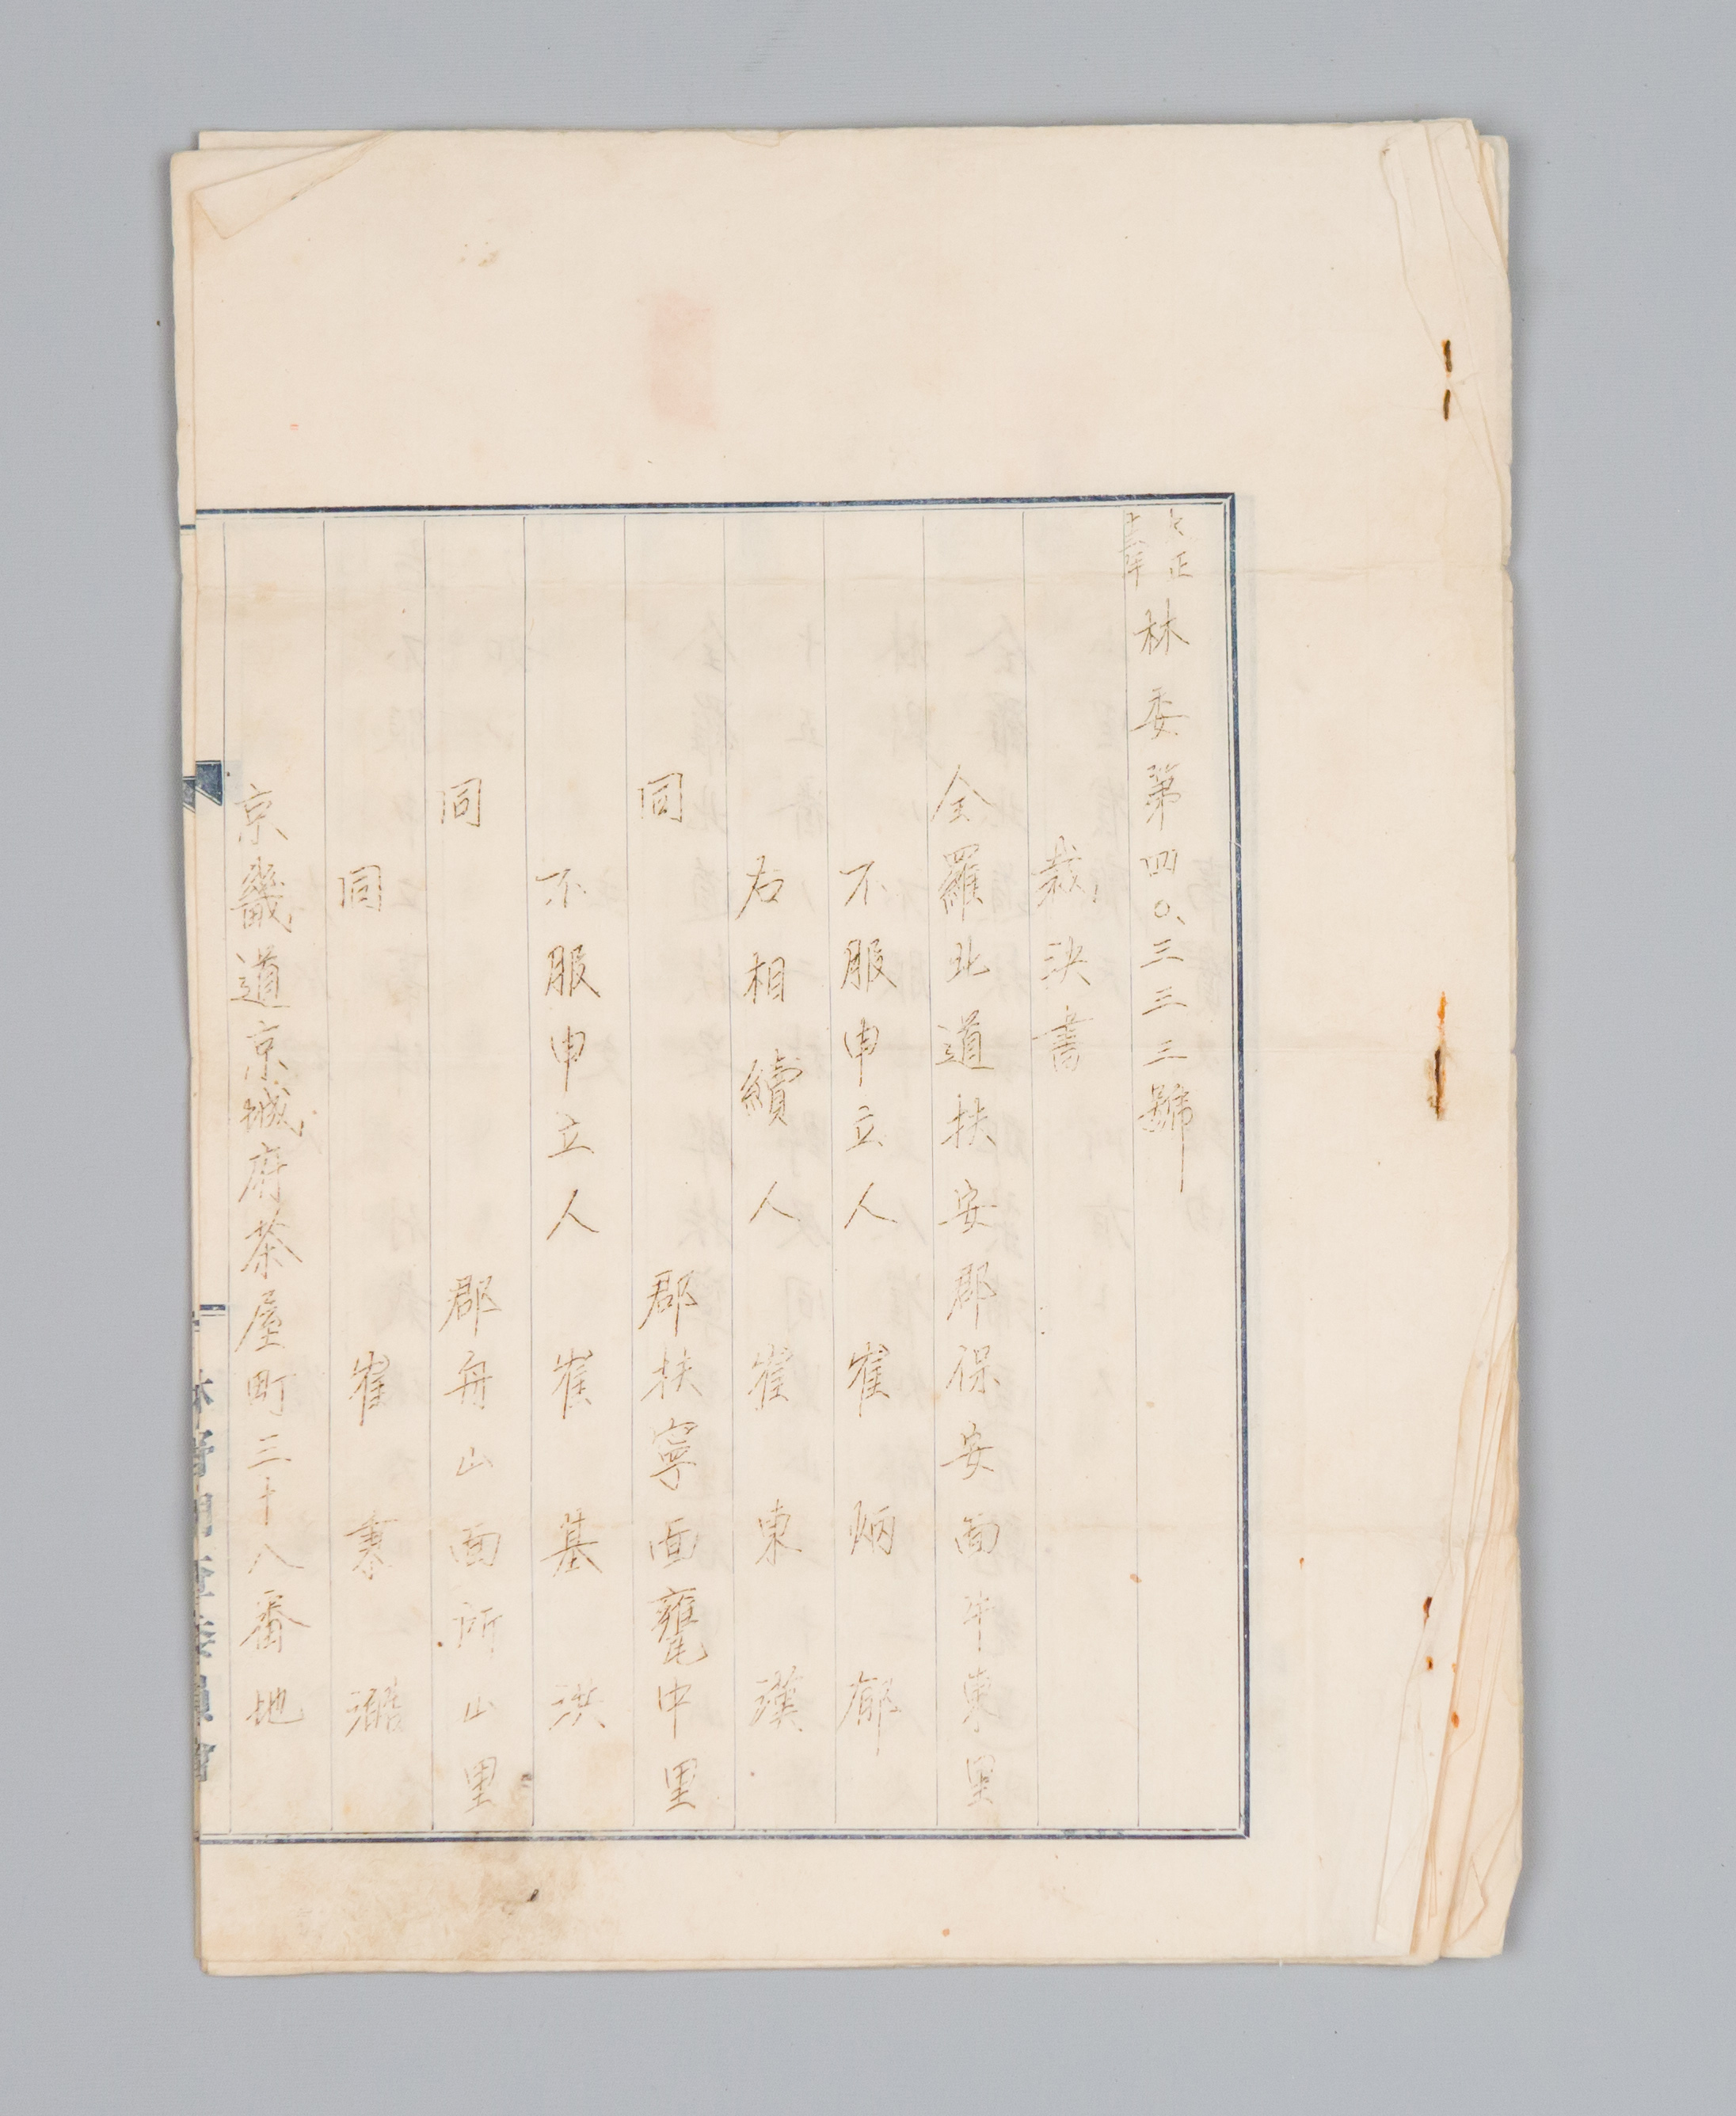 大正十五年 林委第四〇、三三三號
裁決書
全羅北道扶安郡保安面牛東里
不服申立人 崔炳郁
右相續人 崔東漢
同 郡扶寧面甕中里
不服申立人 崔基洪
同 郡舟山面所山里
同 崔秦
京畿道京城府茶屋町三十八番地
林野調査委員會